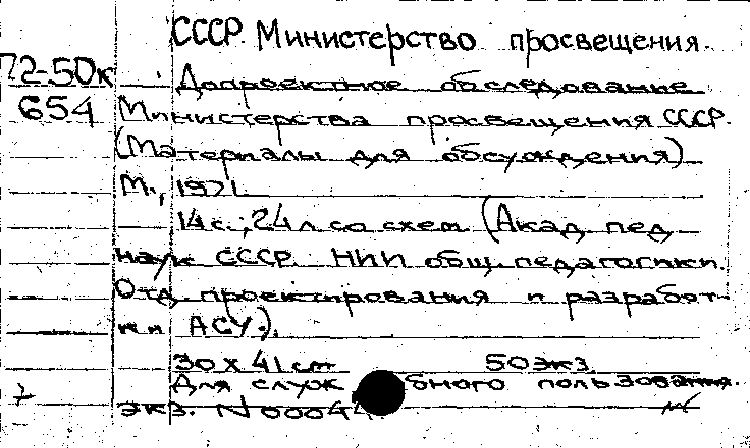 СССР. Министерство просвещения.
72-50к
Допроектное обследование
654
Министерства просвещения СССР.
(Материалы для обсуждения)
М., 1971.
14 с.; 24 л. со схем. (Акад. пед.
наук СССР. НИИ общ. педагогики.
Отд. проектирования и разработ-
ки АСУ.).
30 X 41 cm 50 экз.
Для служ бного пользования.
экз. N 00044